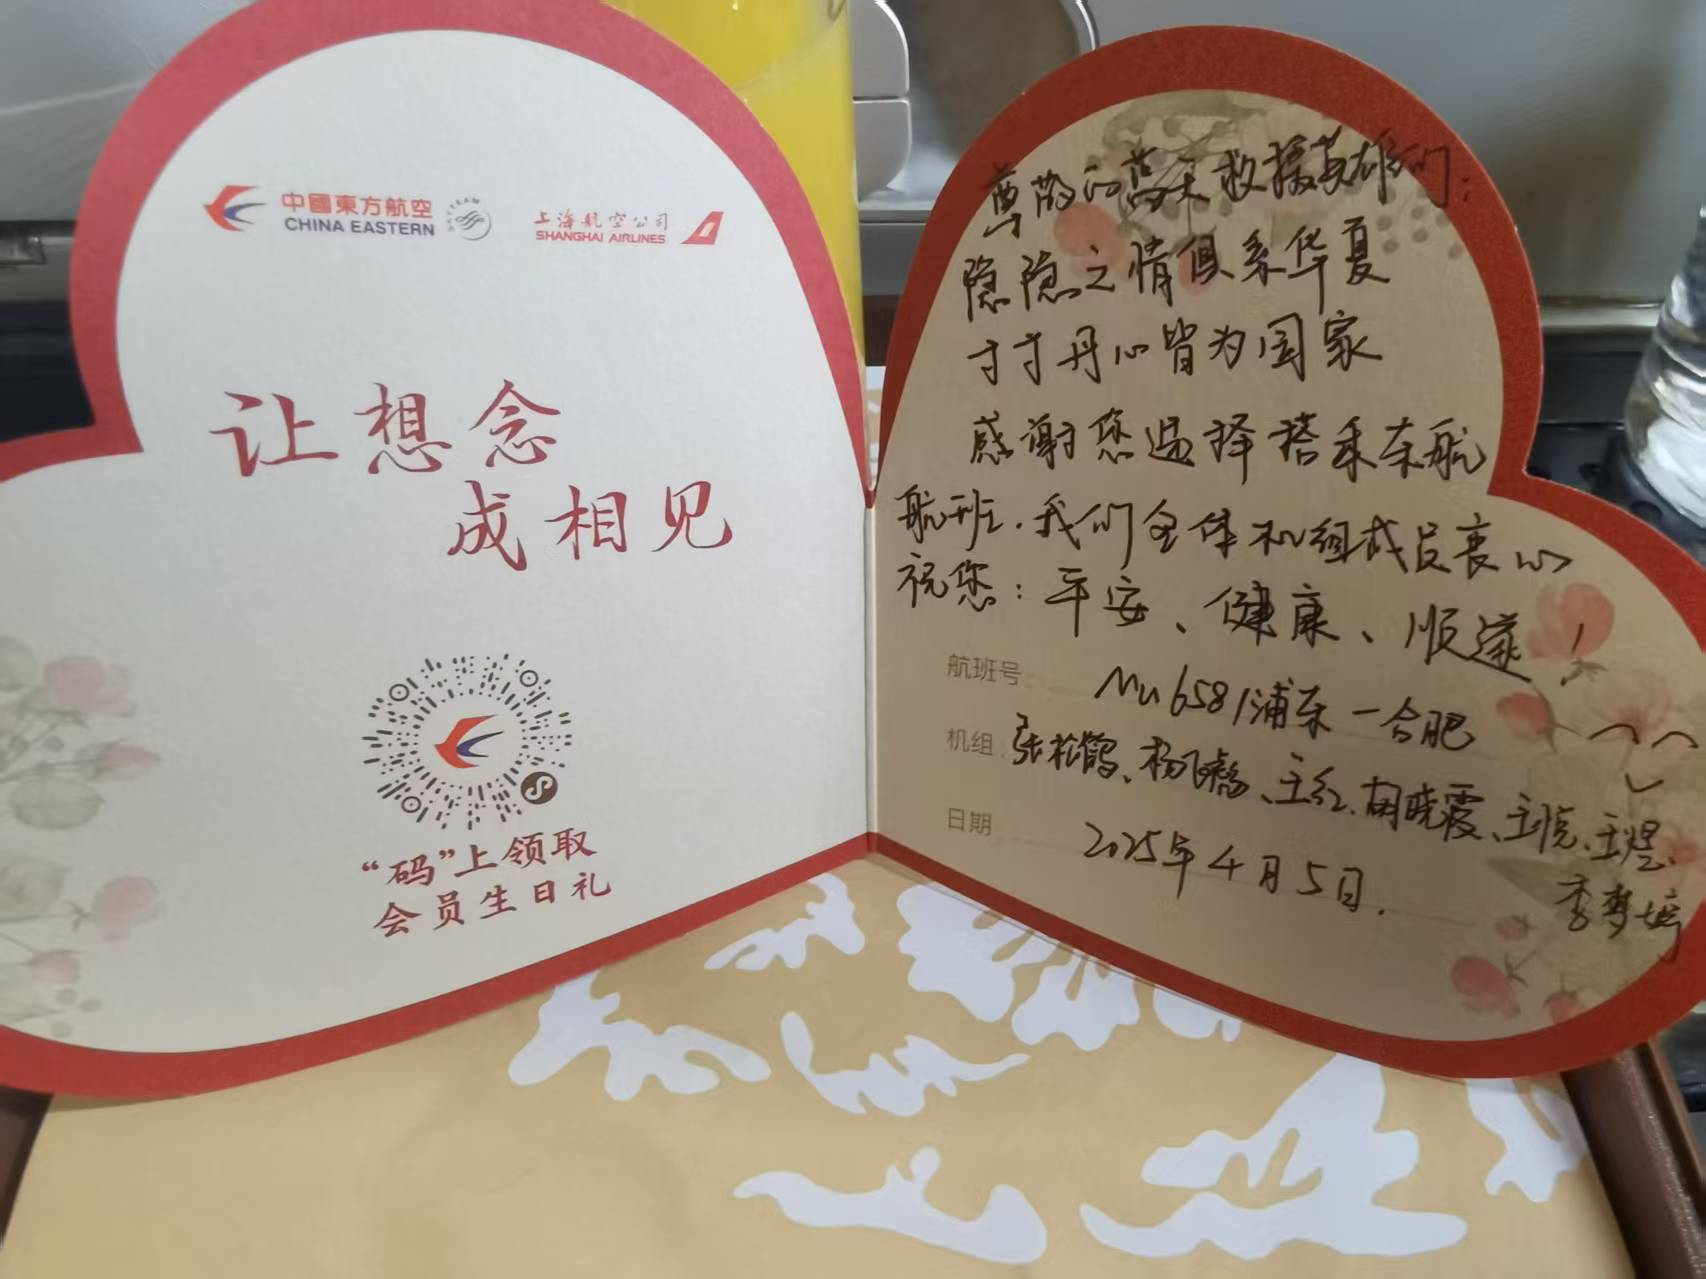 中國東方航空
CHINA EASTERN
SKYTEAM
上海航空公司
SHANGHAI AIRLINES
让想念
成相见
“码”上领取
会员生日礼
尊敬的蓝天救援英雄们：
隐隐之情俱系华夏
寸寸丹心皆为国家
感谢您选择搭乘东航
航班，我们全体机组成员衷心
祝您：平安、健康、顺遂！
航班号：MU6581浦东－合肥
机组：张松鹤、杨飞、王红、胡晓霞、王彪、王煜、
李梦婷
日期 2025年4月5日.